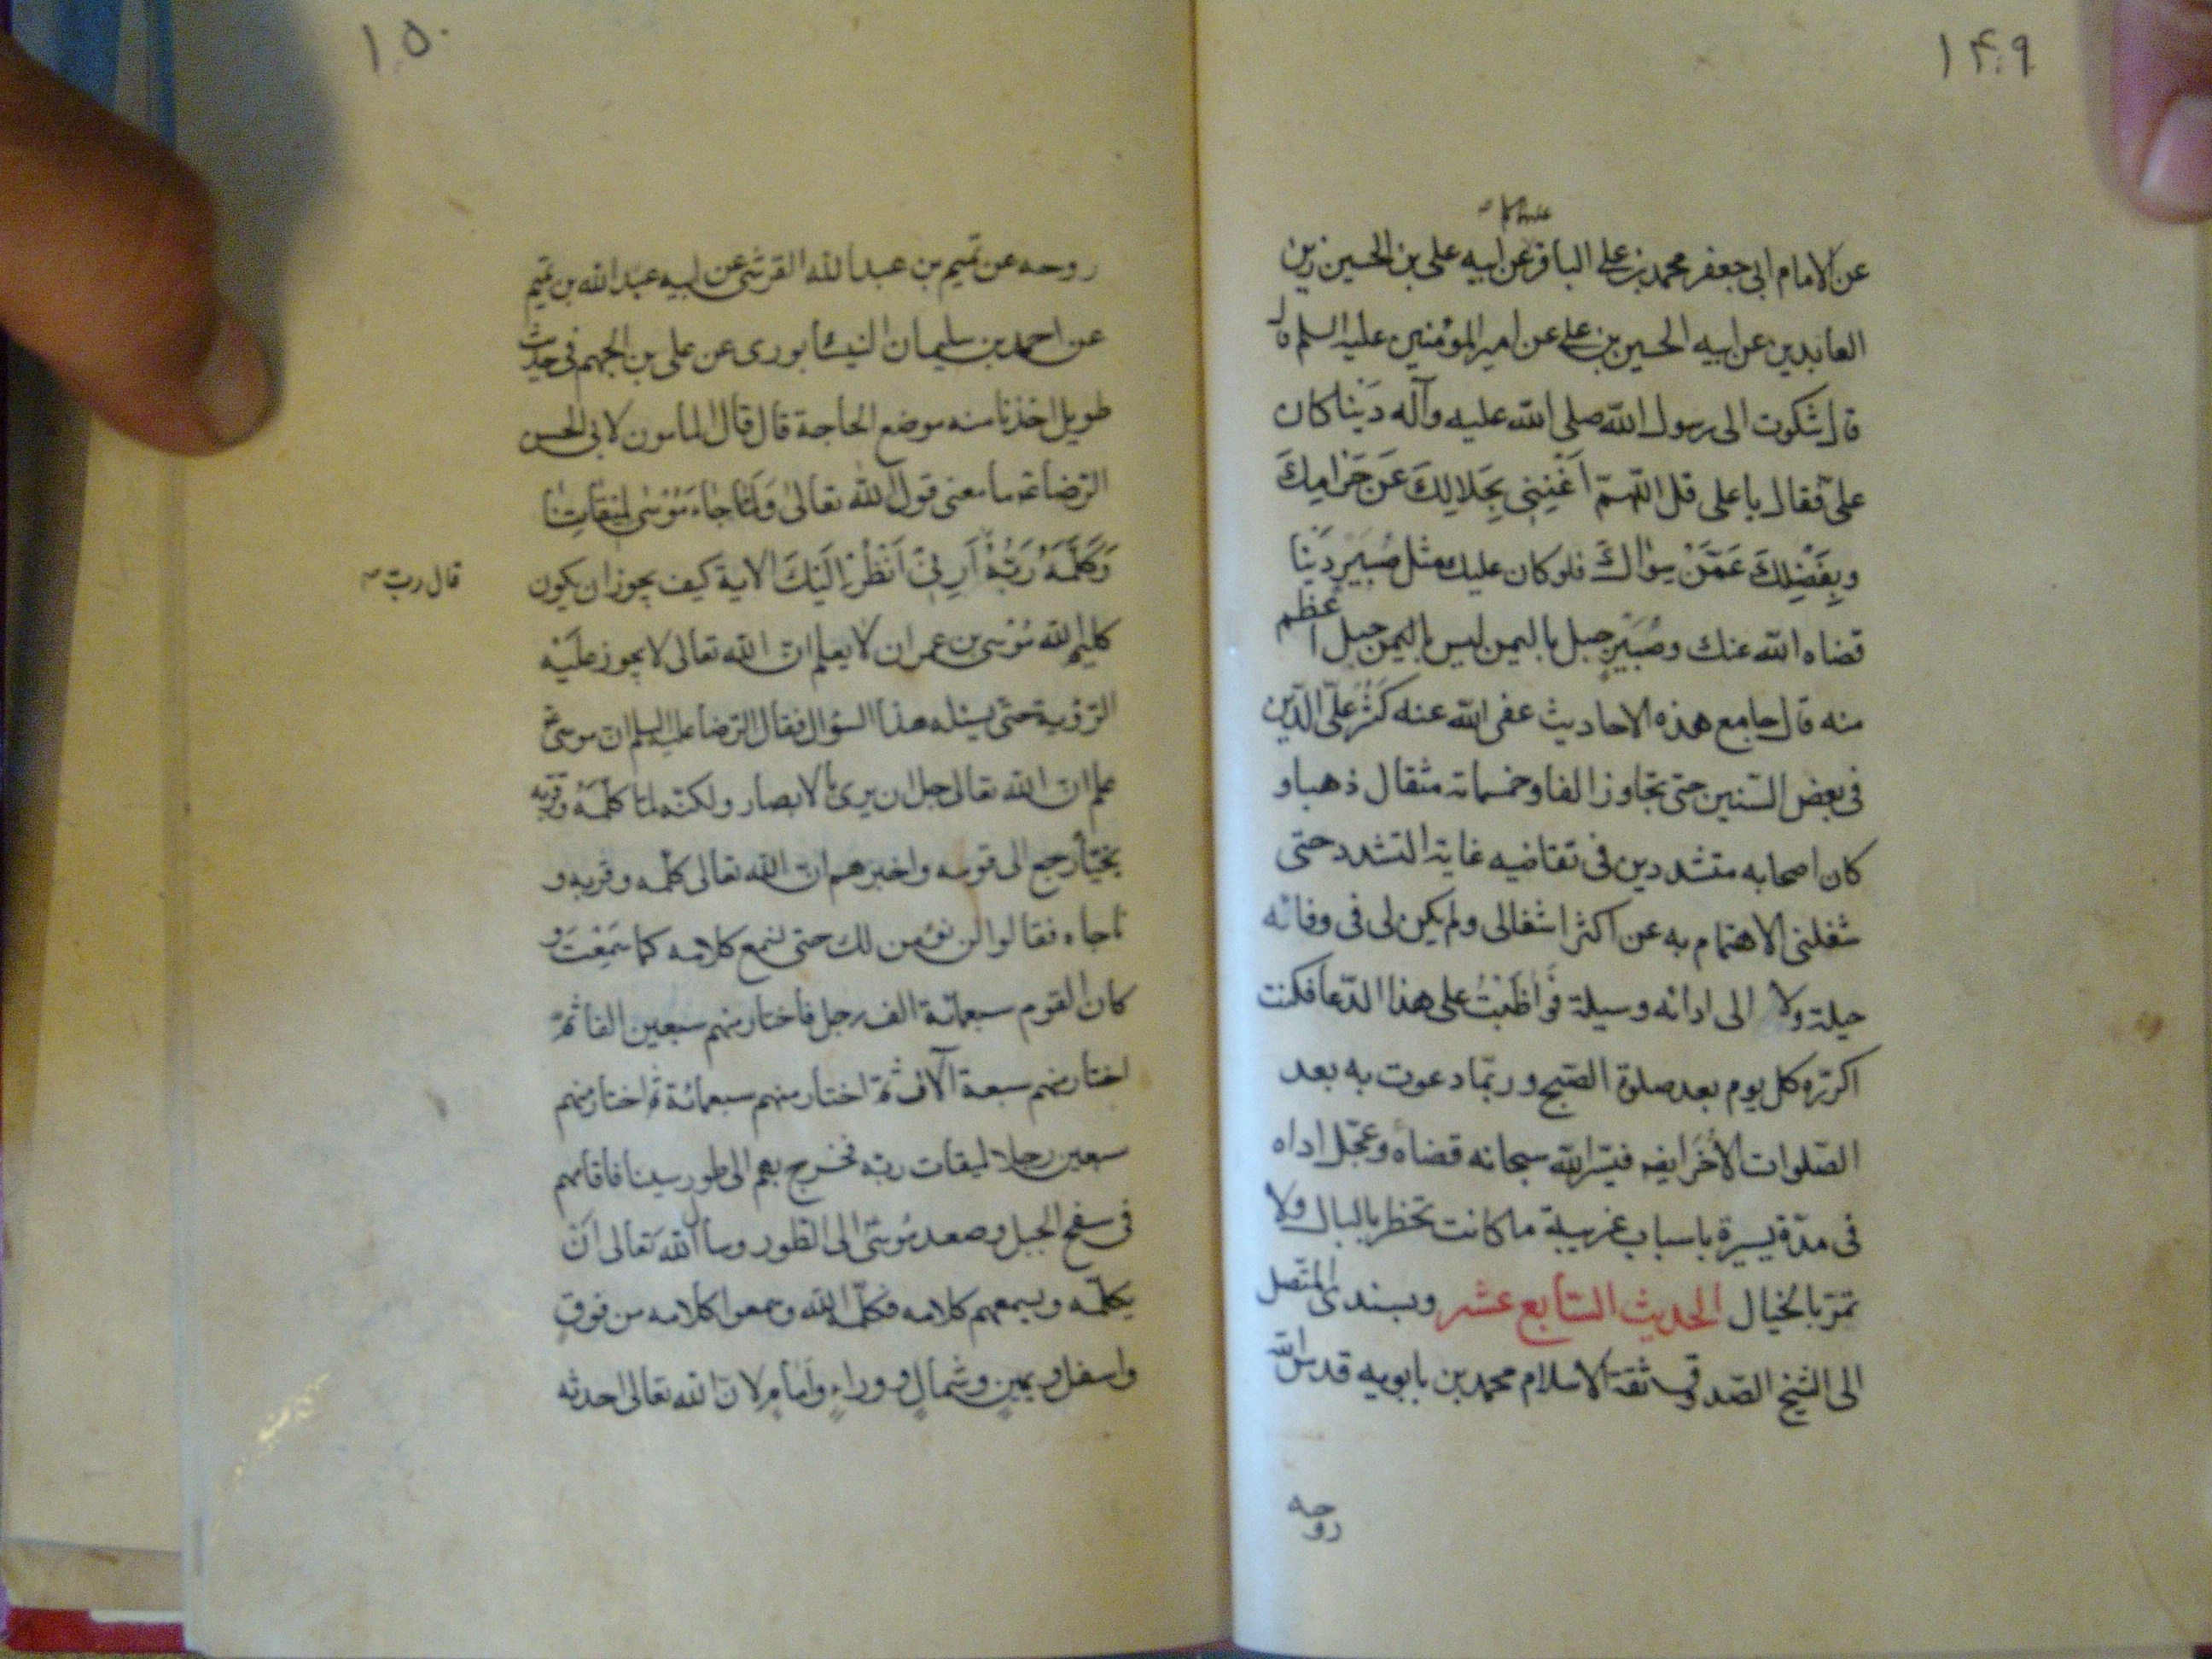 ١۴٩
عن الامام ابى جعفر محمد بن على الباقر عن ابيه على بن الحسين زين
العابدين عن ابيه الحسين بن على عن امير المؤمنين عليه السلم قال
قال شكوت الى رسول الله صلى الله عليه وآله دَيْنا كان
علىّ فقال يا على قل اللهمّ اَغْنِنِى بِحَلالِكَ عَن حَرَامِكَ
وبِفَضْلِكَ عَمَّنْ سِوٰاكَ فلو كان عليك مثل صُبَيْرٍ دَيْنا
قضاه الله عنك وصُبَيْرٍ جبل باليمن ليس باليمن جبل اعظم
منه قال جامع هذه الاحاديث عفى الله عنه كَثُرَ علىّ الدَّين
فى بعض السّنين حتى تجاوز الفا وخمسمائة مثقال ذهبا و
كان اصحابه متشددين فى تقاضيه غاية التشدد حتى
شغلنى الاهتمام به عن اكثر اشغالى ولم يكن لى فى وفائه
حيلة ولا الى ادائه وسيلة فَوٰاظَبْتُ على هذا الدّعا فكنت
اكرّره كل يوم بعد صلوة الصّبح وربّما دعوت به بعد
الصّلوات الأُخَر ايضا فيسّر الله سبحانه قضاه وعجّل اداه
فى مدّة يسيرة باسباب غريبة ما كانت تخطر بالبال ولا
تمرّ بالخيال الحديث السّابع عشر وبسندى المتّصل
الى الشيخ الصّدوق ثقة الاسلام محمد بن بابويه قدس الله
روحه
١۵٠
روحه عن تميم بن عبد الله القرشى عن ابيه عبد الله بن تميم
عن احمد بن سليمان النيسابورى عن على بن الجهم فى حديث
طويل اخذنا منه موضع الحاجة قال قال المأمون لابى الحسن
الرّضا ما معنى قول الله تعالى وَلَمّا جٰاءَ مُوْسٰى لِمِيْقٰاتِنٰا
وَكَلَّمَهُ رَبُّهُ اَرِنِىْ اَنْظُرْ اِلَيْكَ الاية كيف يجوز ان يكون
قال ربّ
كليم الله مُوْسى بن عمران لا يعلم انّ الله تعالى لا يجوز عليْه
الرّؤية حتّى يسئله هذا السؤال فقال الرّضا عليه السلم ان موسى
علم انّ الله تعالى جل ان يرى بالابصار ولكنّه لمّا كلّمَهُ وقربه
نجيّا رجع الى قومه واخبرهم انّ الله تعالى كلّمه وقربه و
ناجاه فقالوا لن نؤمن لك حتى نسمع كلامه كما سَمِعْتَ و
كان القوم سبعمائة الف رجل فاختار منهم سبعين الفا ثمّ
اختار منهم سبعة آلاف ثمّ اختار منهم سبعمائة ثم اختار منهم
سبعين رجلا لميقات ربّه فخرج بهم الى طور سينا فاقامهم
فى سفح الجبل وصعد مُوسَى الى الطّور وسأل الله تعالى اَنْ
يكلّمه ويسمعهم كلامه فكلّمه الله وسمعوا كلامه من فوقٍ
واسفل ويمينٍ وشمالٍ ووراءٍ وأمامٍ لانّ الله تعالى احدثه